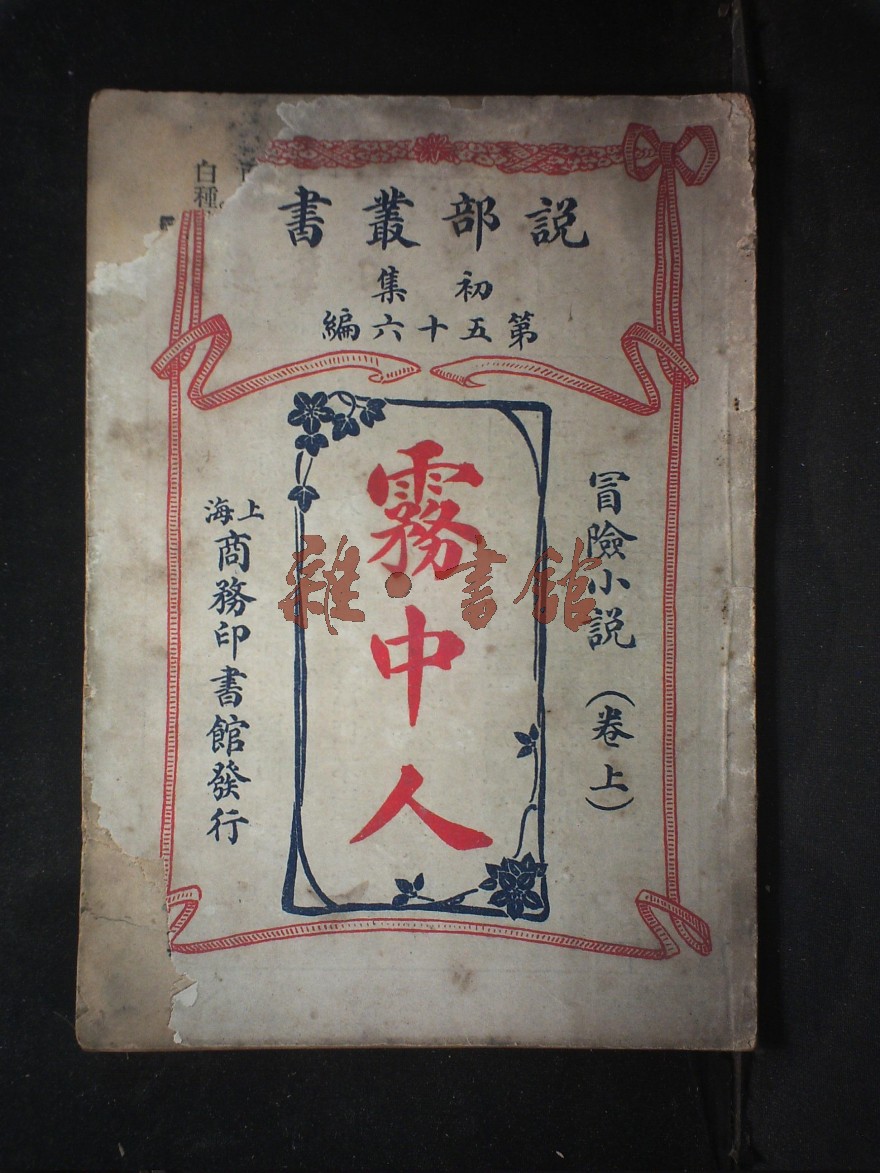 說部叢書
初集
第五十六編
冒險小說（卷上）
霧中人
上海
商務印書館發行
雜·書館
白種